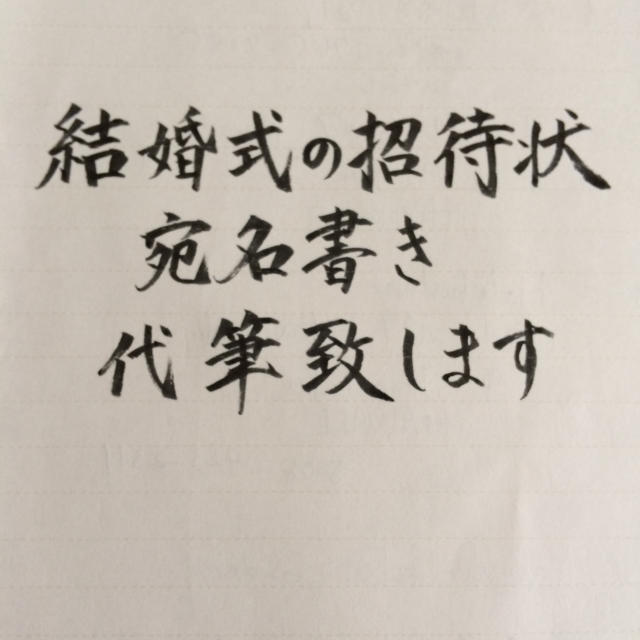 結婚式の招待状
宛名書き
代筆致します